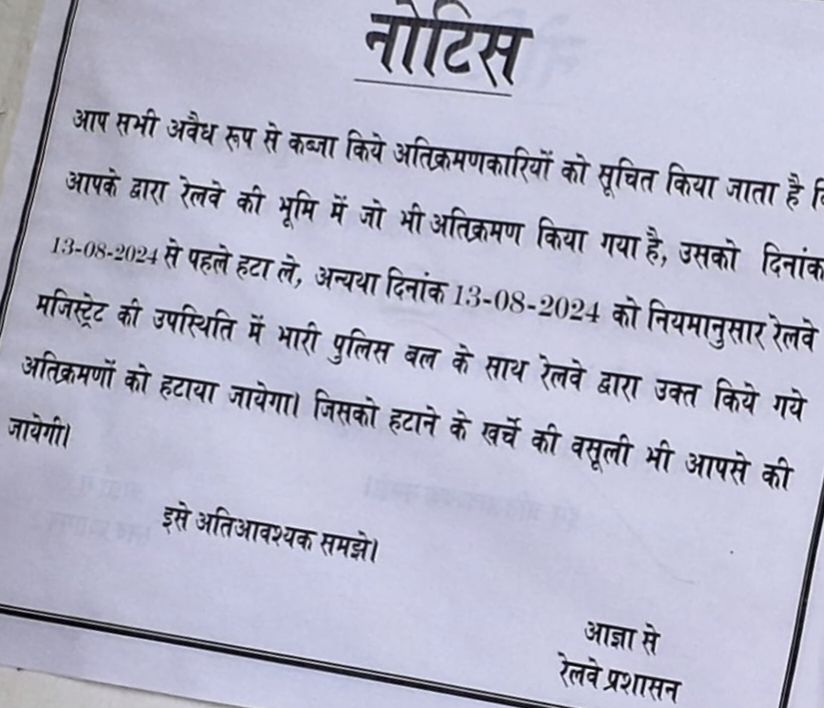 नोटिस
आप सभी अवैध रूप से कब्जा किये अतिक्रमणकारियों को सूचित किया जाता है
आपके द्वारा रेलवे की भूमि में जो भी अतिक्रमण किया गया है, उसको दिनांक
13-08-2024 से पहले हटा ले, अन्यथा दिनांक 13-08-2024 को नियमानुसार रेलवे
मजिस्ट्रेट की उपस्थिति में भारी पुलिस बल के साथ रेलवे द्वारा उक्त किये गये
अतिक्रमणों को हटाया जायेगा। जिसको हटाने के खर्चे की वसूली भी आपसे की
जायेगी।
इसे अतिआवश्यक समझे।
आज्ञा से
रेलवे प्रशासन